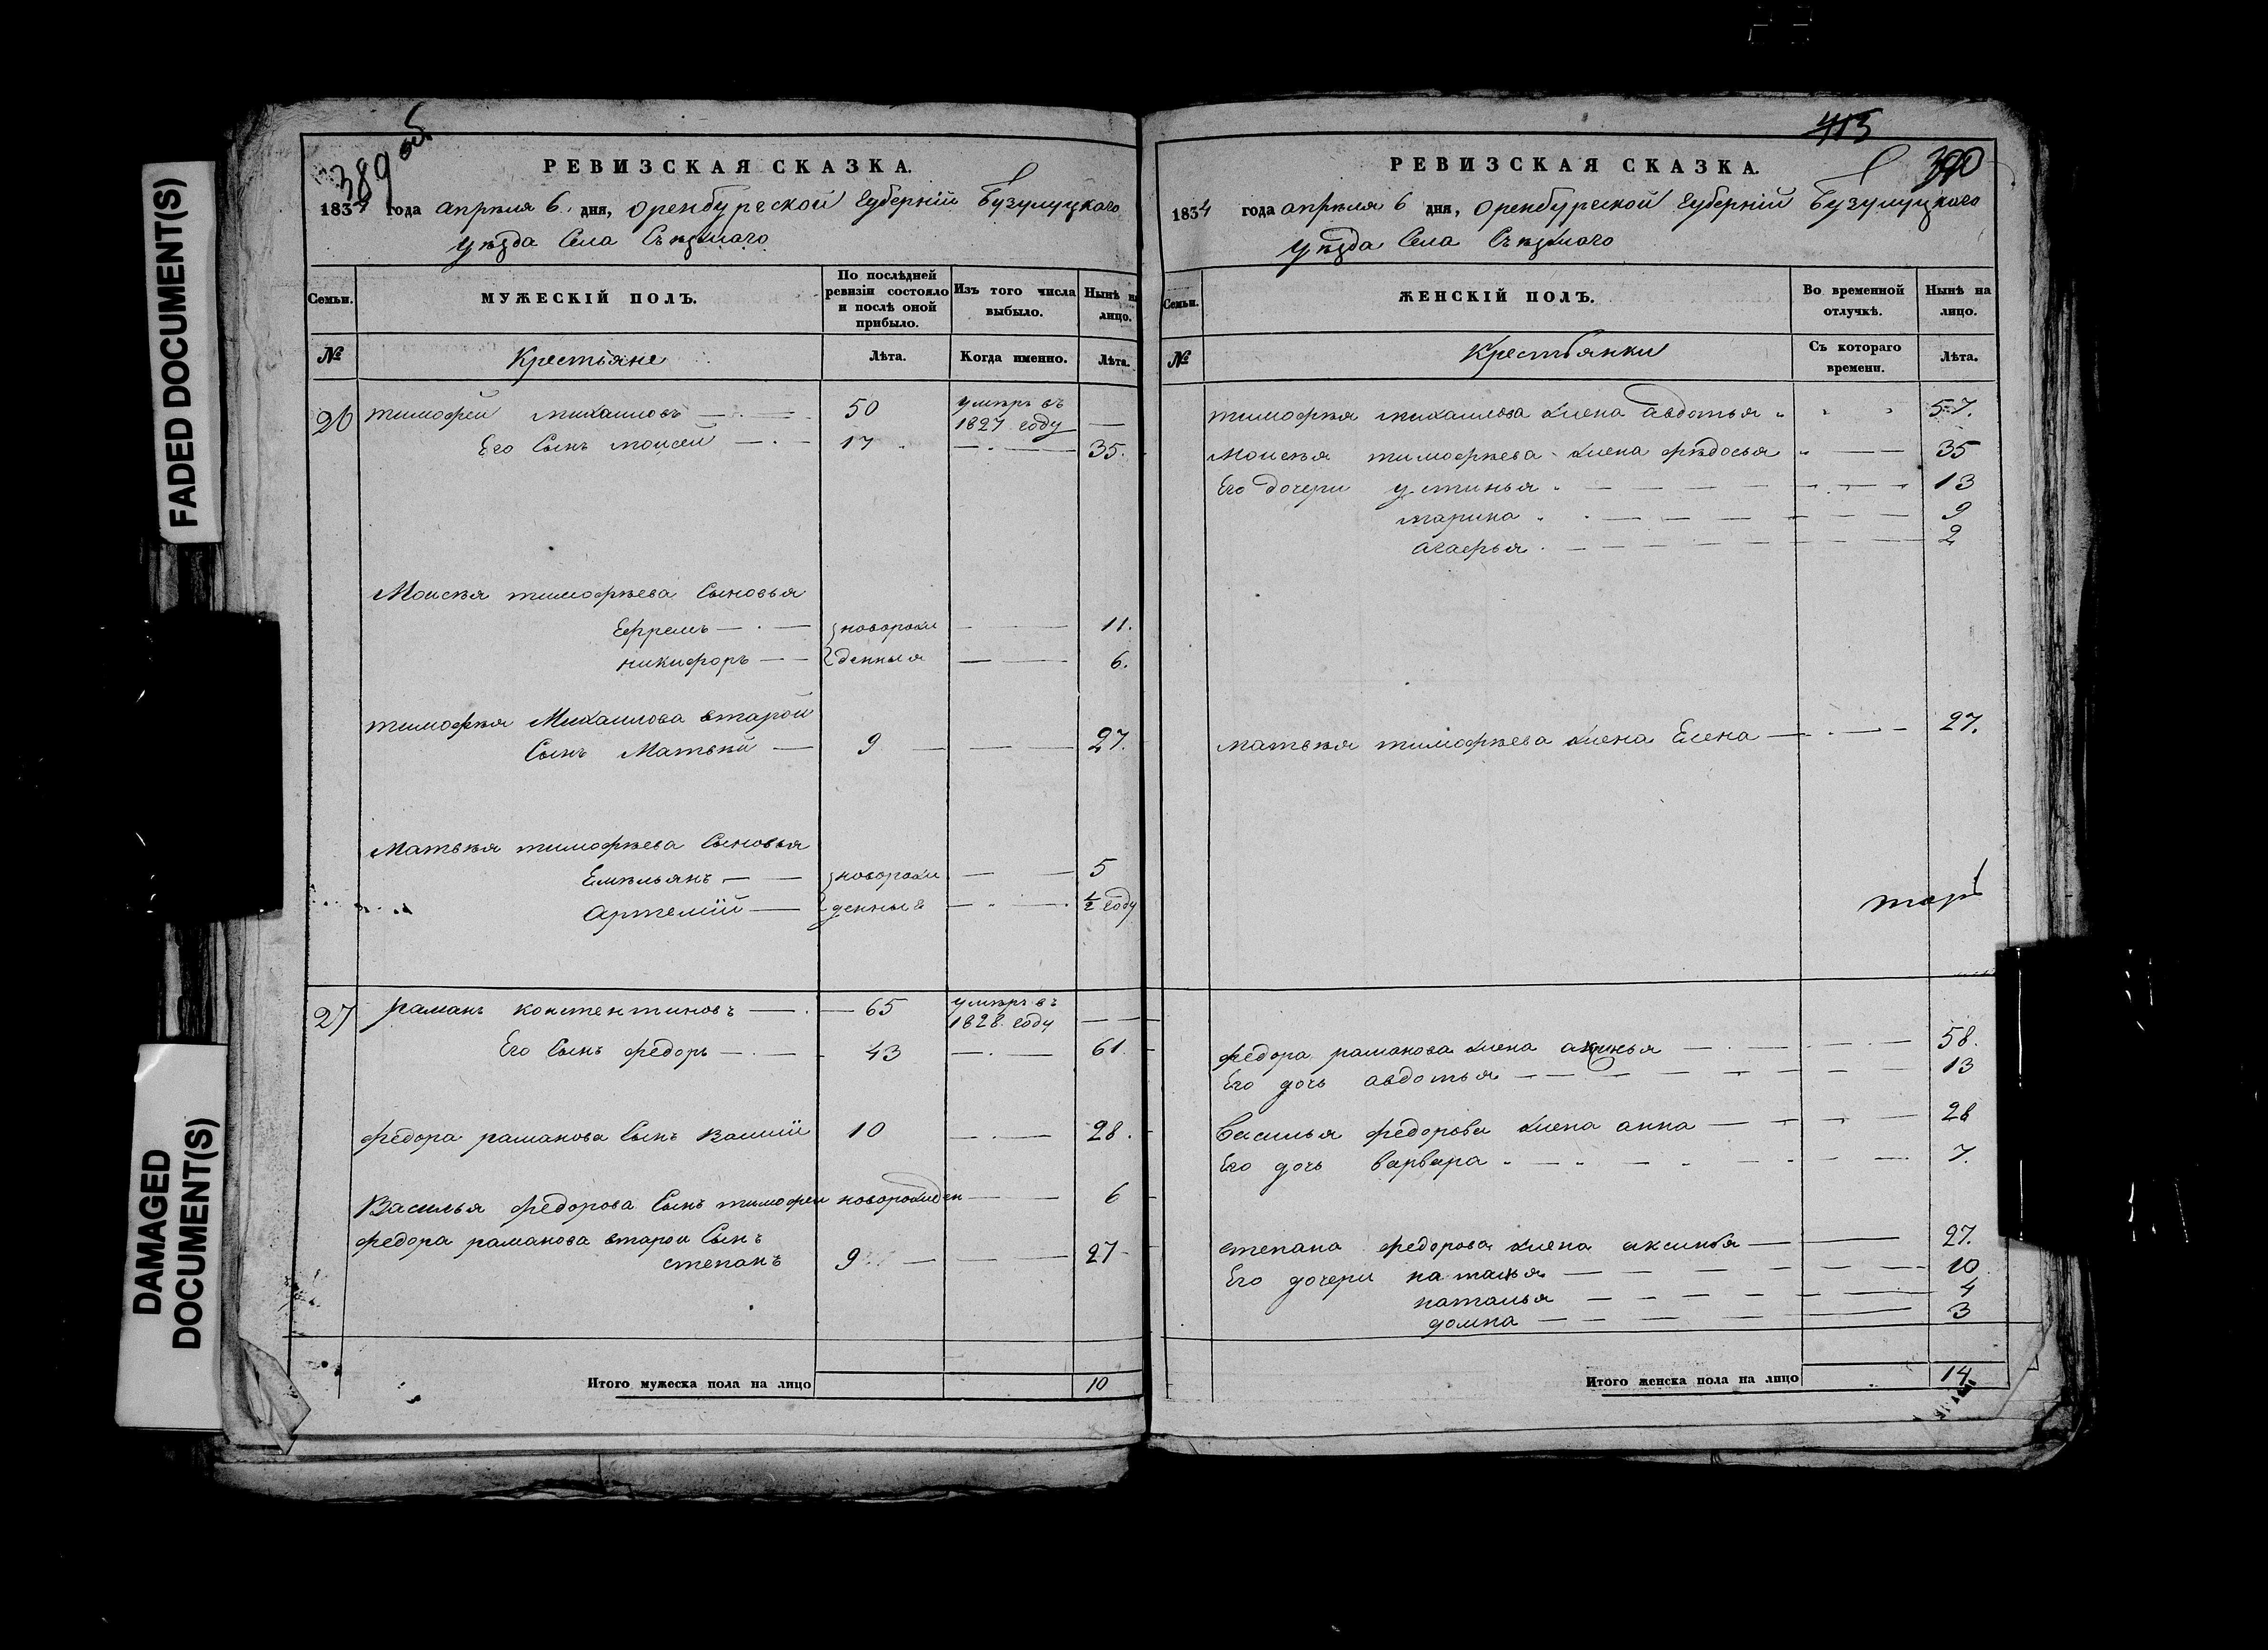 FADED DOCUMENT(S)
DAMAGED DOCUMENT(S)
389 об.
РЕВИЗСКАЯ СКАЗКА.
1834 года апрѣля 6 дня, Оренбургской Губерніи Бузулуцкаго
уѣзда Села Съѣзжаго
Семьи. МУЖЕСКІЙ ПОЛЪ. По послѣдней ревизіи состояло и послѣ оной прибыло. Изъ того числа выбыло. Нынѣ на лицо.
№ Крестьяне Лѣта. Когда именно. Лѣта.
26 тимофей михаиловъ 50 умѣръ въ 1827 году
Его Сынъ моисей 17 35.
Моисѣя тимофѣева Сыновья
Ефремъ новорож 11.
никифоръ денныя 6.
тимофѣя Михаилова второй
Сынъ Матвѣй 9 27.
Матвѣя тимофѣева Сыновья
Емѣльянъ новорож 5
Артемій денные ½ году
27 раманъ константиновъ 65 умѣръ въ 1828 году
Его Сынъ федоръ 43 61.
федора раманова Сынъ Васили 10 28.
Василья федорова Сынъ тимофеи новорожден 6
федора раманова второи Сынъ
степанъ 9 27
Итого мужеска пола на лицо 10
413
390
РЕВИЗСКАЯ СКАЗКА.
1834 года апрѣля 6 дня, Оренбургской Губерніи Бузулуцкаго
уѣзда Села Съѣзжаго
Семьи. ЖЕНСКІЙ ПОЛЪ. Во временной отлучкѣ. Нынѣ на лицо.
№ Крестьянки Съ котораго времени. Лѣта.
тимофѣя михаилова жена авдотья 57.
Моисѣя тимофѣева жена фѣдосья 35
Его дочери устинья 13
марина 9
агафья 2
матвѣя тимофѣева жена Елена 27.
федора раманова жена аксинья 58.
Его дочь авдотья 13
Василья федорова жена анна 28
Его дочь варвара 7.
степана федорова жена аксинья 27.
Его дочери наталья 10
наталья 4
домна 3
Итого женска пола на лицо 14